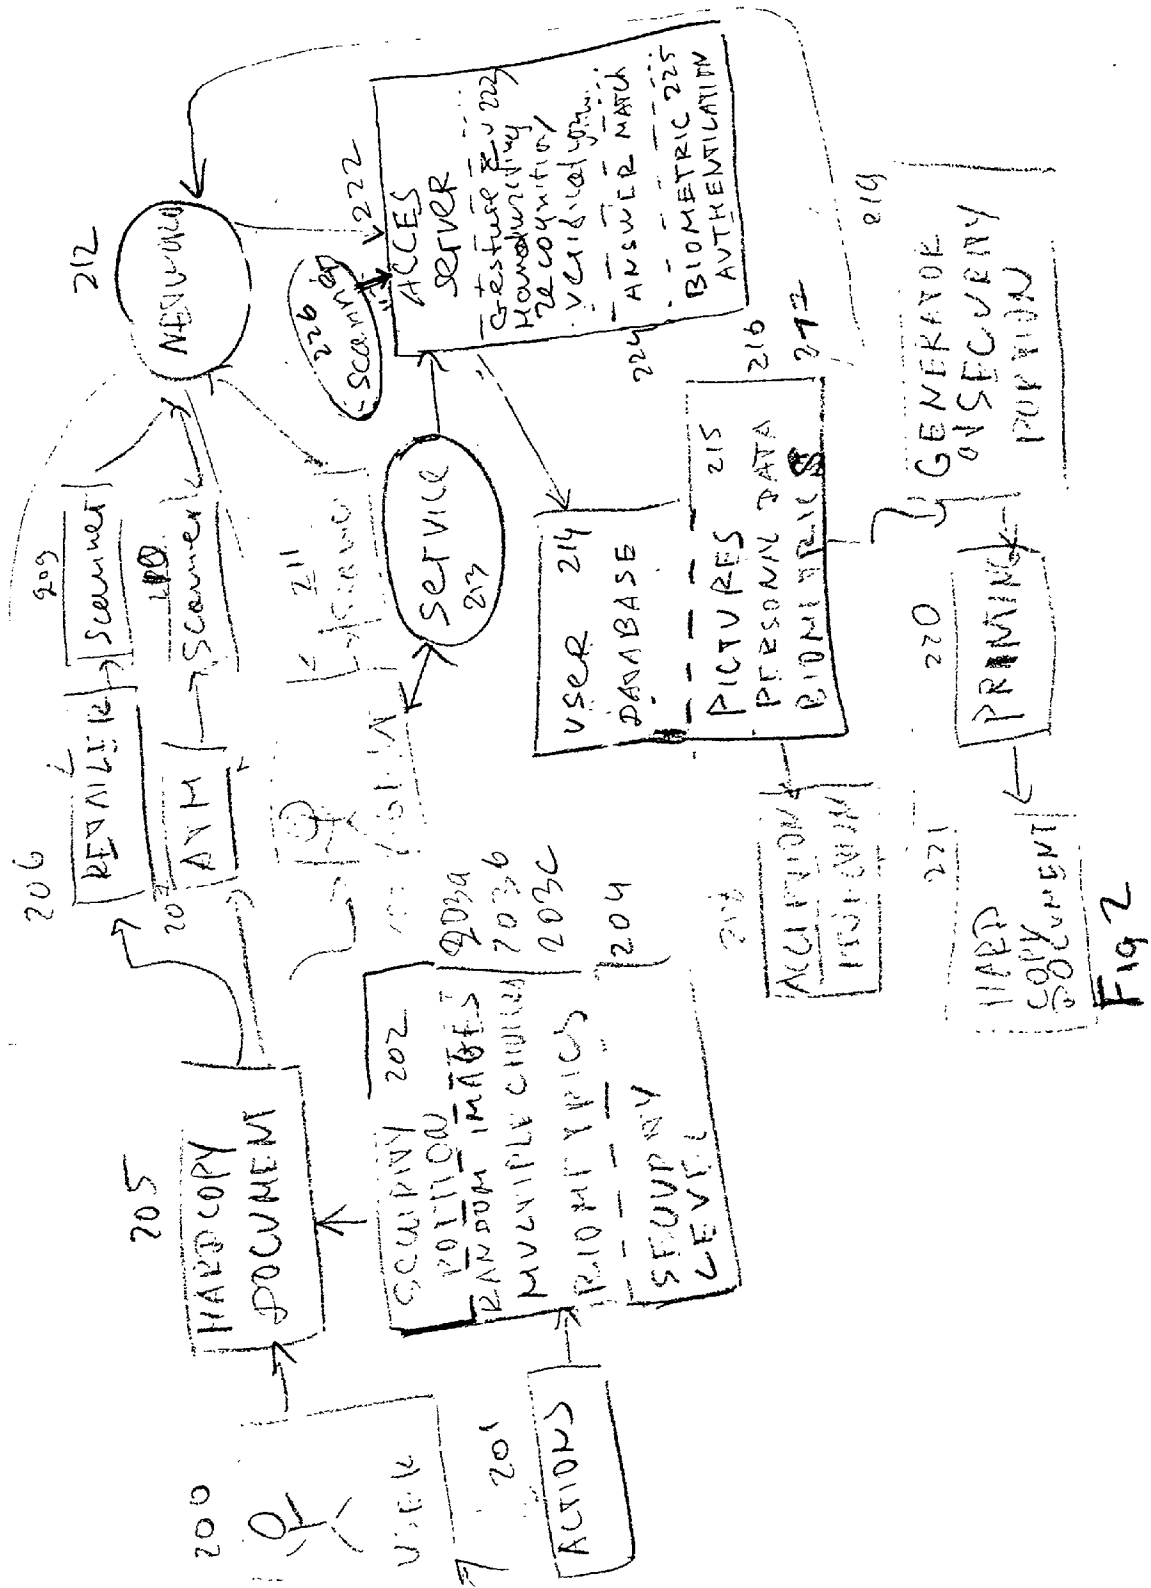 200
USER
201
ACTIONS
205
HARDCOPY
DOCUMENT
SECURITY 202
PORTION
RANDOM IMAGES 203a
MULTIPLE CHOICES 203b
BIOMETRICS 203c
SECURITY 204
LEVEL
206
RETAILER
207
ATM
209
Scanner
Scanner
211
Scanner
212
NETWORK
Service
213
226
Scanner
222
ACCES
Server
Gesture 223
Handwriting
recognition/
verification
224
ANSWER MATCH
BIOMETRIC 225
AUTHENTICATION
USER 214
DATABASE
PICTURES 215
PERSONAL DATA 216
BIOMETRICS 217
218
219
GENERATOR
OF SECURITY
PORTION
220
PRINTING
221
HARD
COPY
DOCUMENT
Fig 2